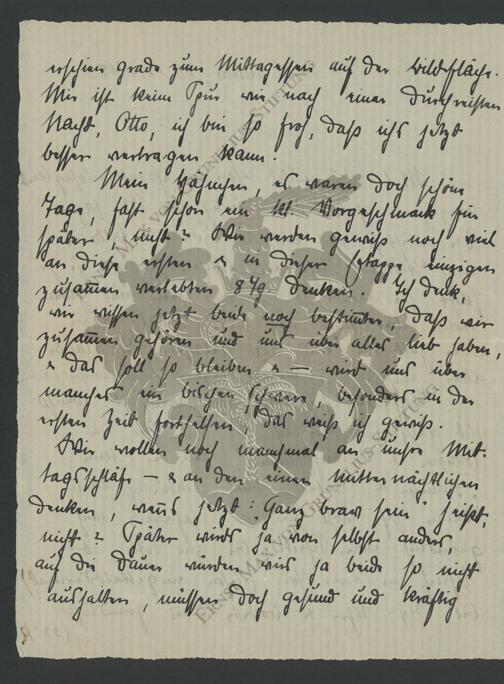 erschien grade zum Mittagessen auf der Bildfläche.
Mir ist keine Spur wie nach einer durchreisten
Nacht, Otto, ich bin so froh, daß ichs jetzt
besser vertragen kann.
Mein Hähnchen, es waren doch schöne
Tage, fast schon ein kl. Vorgeschmack für
später, nicht? Wir werden gewiß noch viel
an diese ersten & in dieser Etappe einzigen
zusammen verlebten 8 Tg denken. Ich denk,
wir wissen jetzt beide noch bestimmter, daß wir
zusammen gehören und uns über alles lieb haben,
& das soll so bleiben & — wird uns über
manches ein bischen Schwere, besonders in der
ersten Zeit forthelfen, das weiß ich gewiß.
Wir wollen noch manchmal an unsre Mit-
tagsschläfe — & an den einen mitternächtlichen
denken, wenns jetzt: „Ganz brav sein" heißt,
nicht? Später wirds ja von selbst anders,
auf die Dauer würden wirs ja beide so nicht
aushalten, müssen doch gesund und kräftig
ERNST MAX VON GRUNELIUS-STIFTUNG